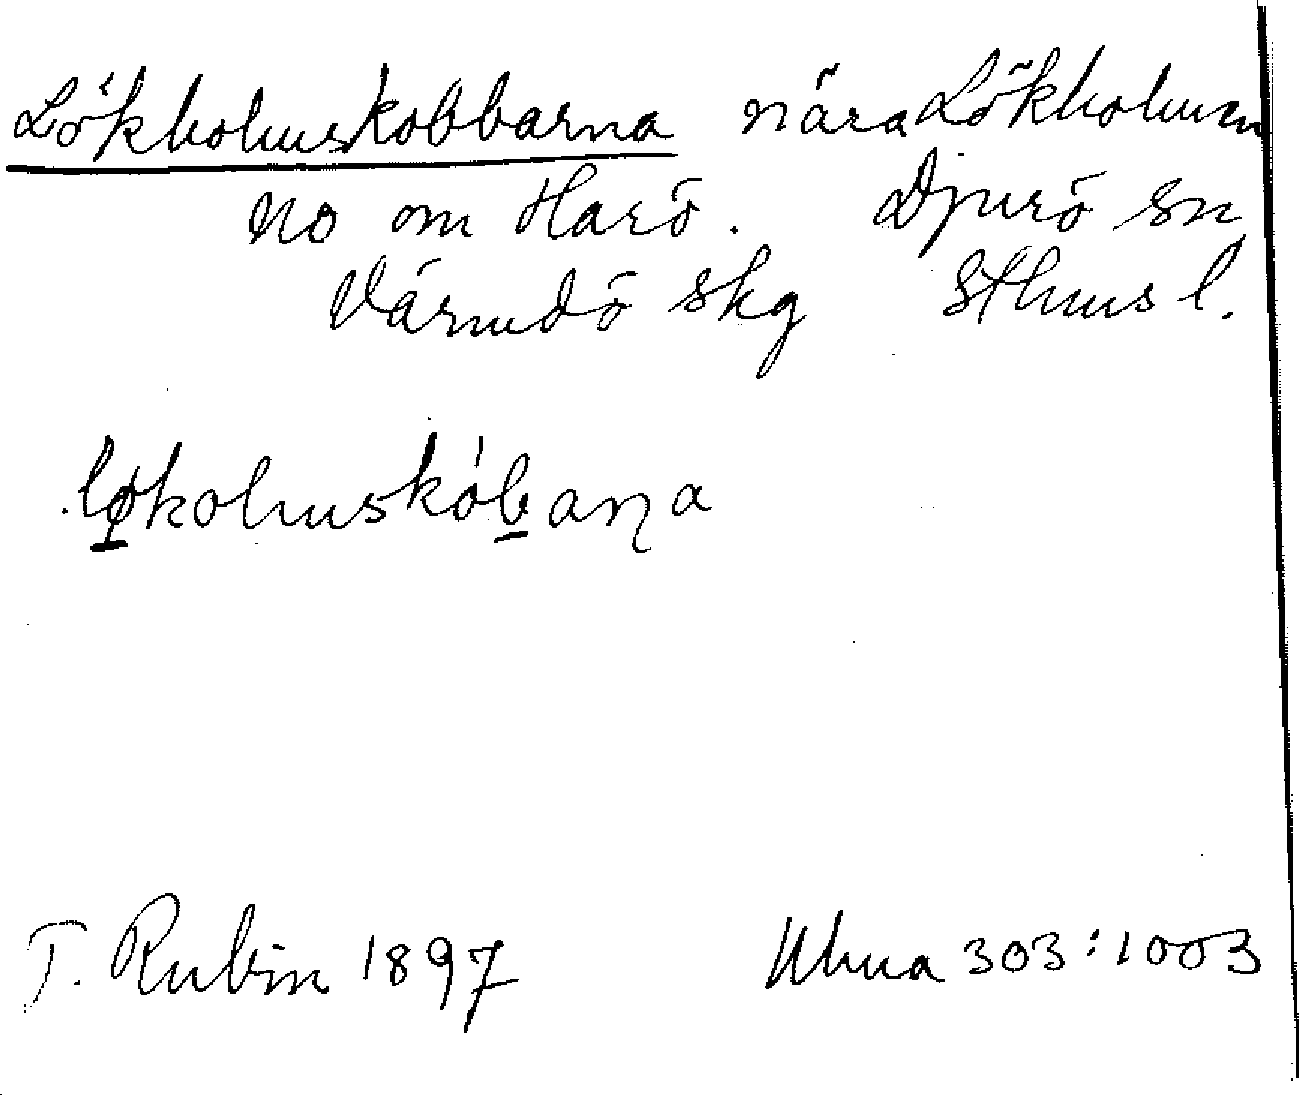 Lökholmskobbarna nära Lökholmen
NO om Harö. Djurö sn
Värmdö skg Sthms l.
løkolmskóbaṇa
T. Rubin 1897
303:1003